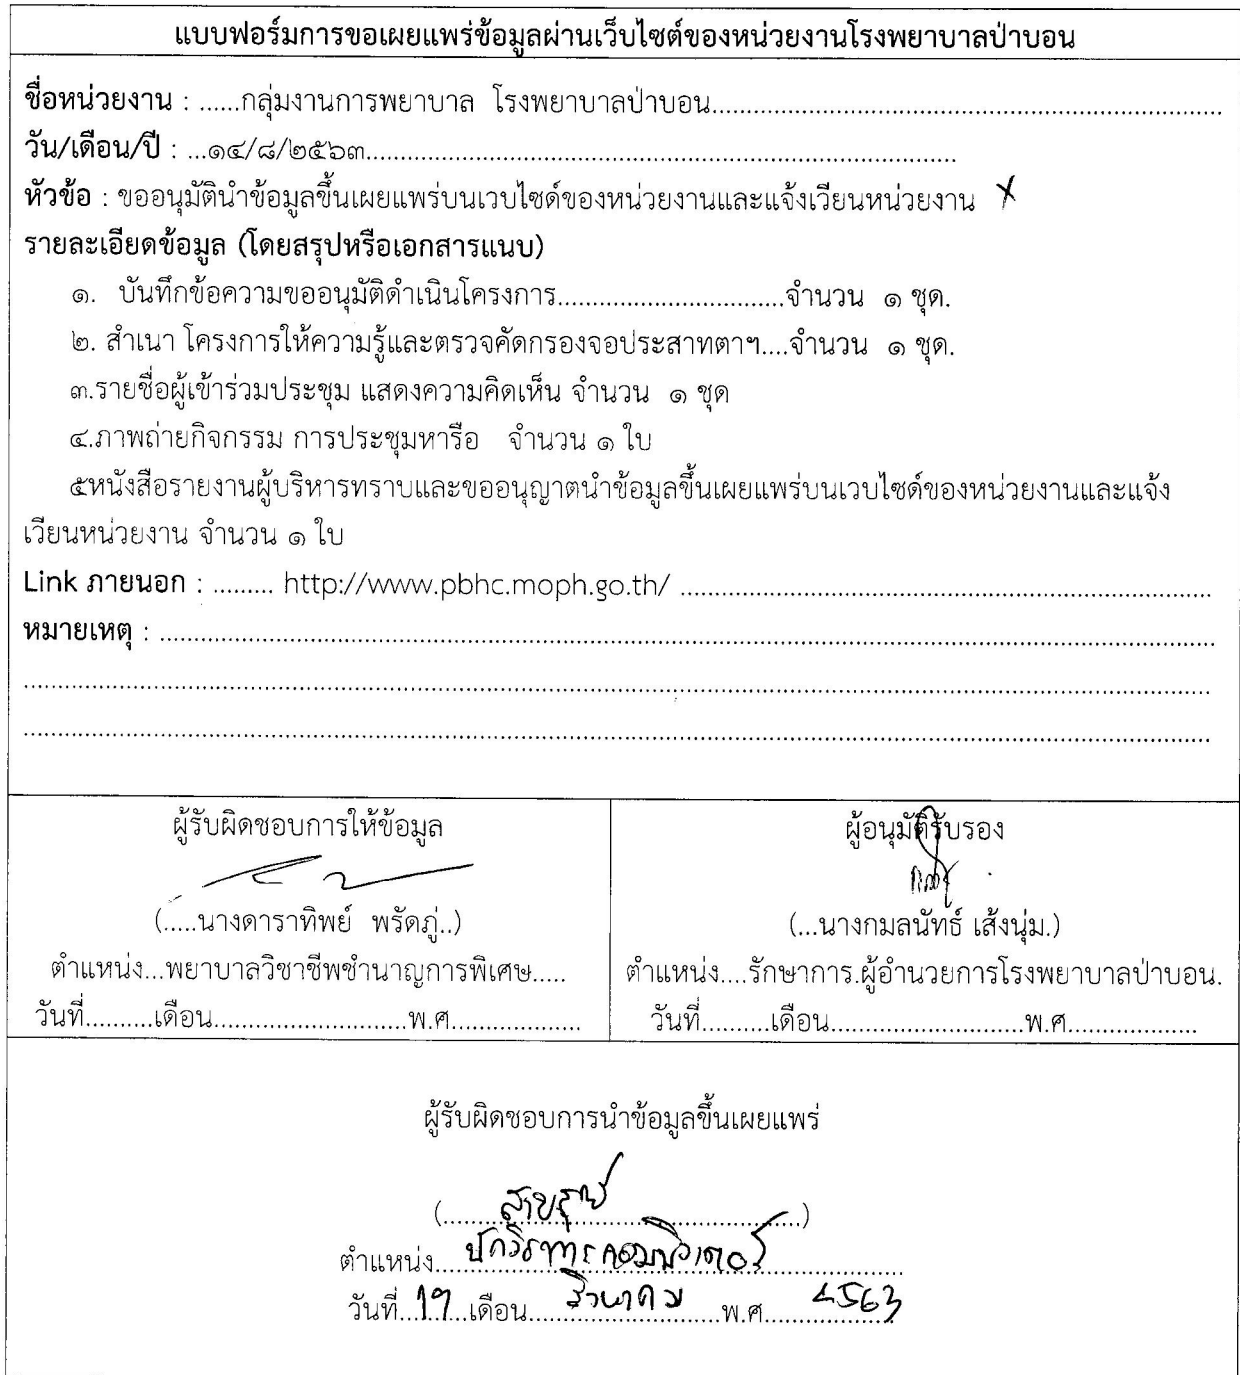 แบบฟอร์มการขอเผยแพร่ข้อมูลผ่านเว็บไซต์ของหน่วยงานโรงพยาบาลป่าบอน
ชื่อหน่วยงาน : ......กลุ่มงานการพยาบาล โรงพยาบาลป่าบอน..........................................................................
วัน/เดือน/ปี : ...๑๔/๘/๒๕๖๓.....................................................................................
หัวข้อ : ขออนุมัตินำข้อมูลขึ้นเผยแพร่บนเวบไซด์ของหน่วยงานและแจ้งเวียนหน่วยงาน
รายละเอียดข้อมูล (โดยสรุปหรือเอกสารแนบ)
๑. บันทึกข้อความขออนุมัติดำเนินโครงการ.................................จำนวน ๑ ชุด.
๒. สำเนา โครงการให้ความรู้และตรวจคัดกรองจอประสาทตาฯ....จำนวน ๑ ชุด.
๓.รายชื่อผู้เข้าร่วมประชุม แสดงความคิดเห็น จำนวน ๑ ชุด
๔.ภาพถ่ายกิจกรรม การประชุมหารือ จำนวน ๑ ใบ
๕หนังสือรายงานผู้บริหารทราบและขออนุญาตนำข้อมูลขึ้นเผยแพร่บนเวบไซด์ของหน่วยงานและแจ้ง
เวียนหน่วยงาน จำนวน ๑ ใบ
Link ภายนอก : ......... http://www.pbhc.moph.go.th/ ..............................................................................
หมายเหตุ : ..........................................................................................................................................................
ผู้รับผิดชอบการให้ข้อมูล
(.....นางดาราทิพย์ พรัดภู่..)
ตำแหน่ง...พยาบาลวิชาชีพชำนาญการพิเศษ.....
วันที่..........เดือน............................พ.ศ...................
ผู้อนุมัติรับรอง
(...นางกมลนัทธ์ เส้งนุ่ม.)
ตำแหน่ง....รักษาการ.ผู้อำนวยการโรงพยาบาลป่าบอน.
วันที่..........เดือน............................พ.ศ...................
ผู้รับผิดชอบการนำข้อมูลขึ้นเผยแพร่
(....................................................)
ตำแหน่ง....นักวิชาการคอมพิวเตอร์....................
วันที่...19...เดือน.....สิงหาคม......พ.ศ.......2563